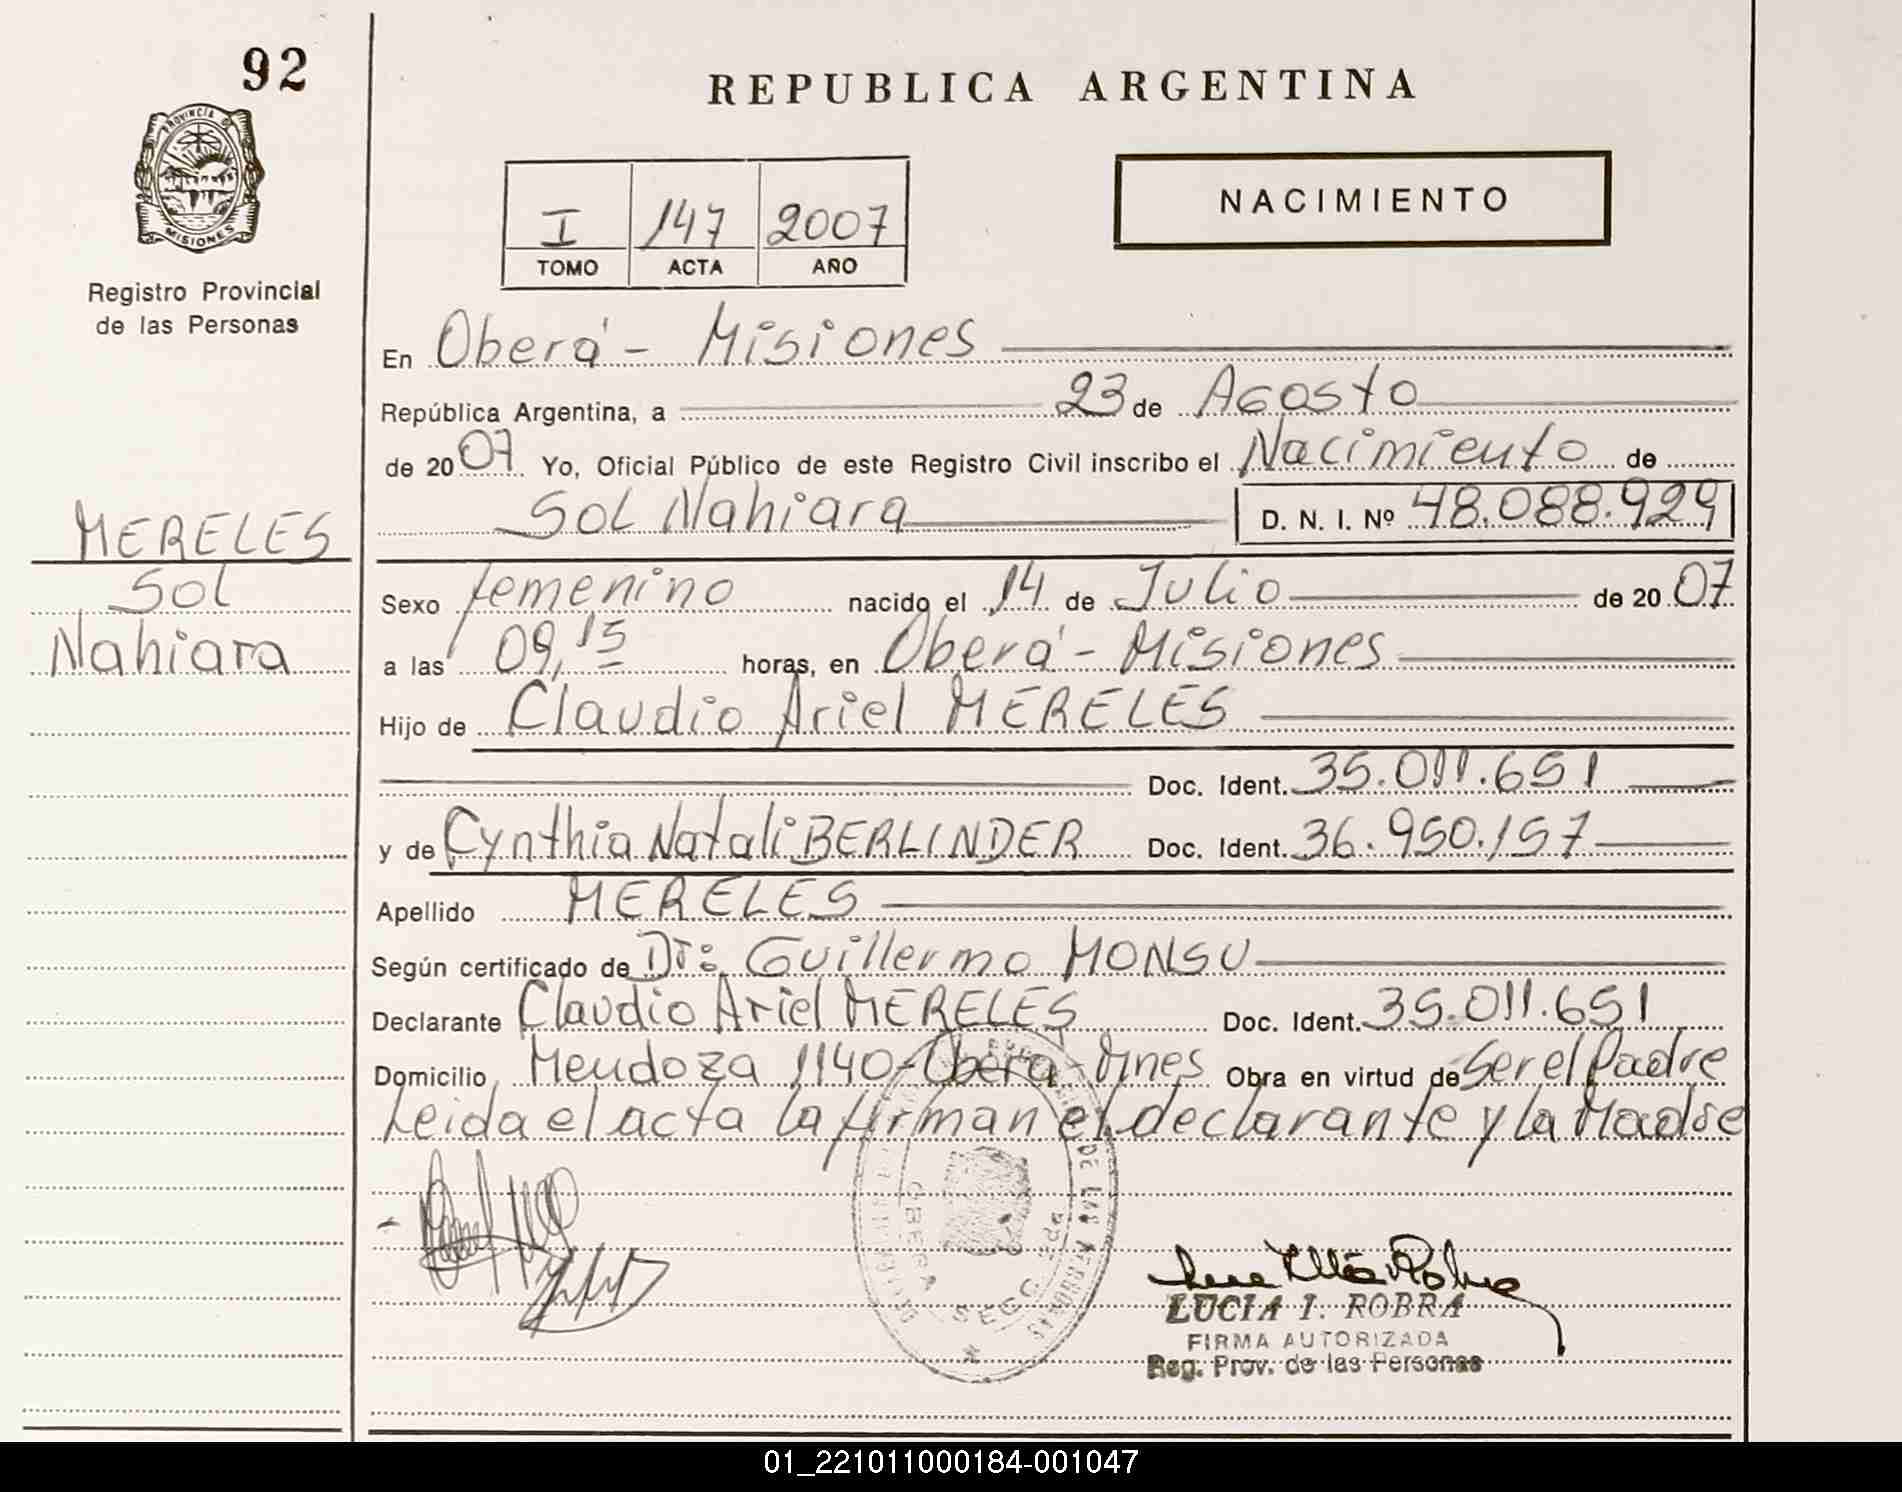 92
PROVINCIA DE
MISIONES
Registro Provincial
de las Personas
MERELES
Sol
Nahiara
REPUBLICA ARGENTINA
I 147 2007
TOMO ACTA AÑO
NACIMIENTO
En Oberá - Misiones
República Argentina, a 23 de Agosto
de 2007. Yo, Oficial Público de este Registro Civil inscribo el Nacimiento de
Sol Nahiara D. N. I. Nº 48.088.929
Sexo femenino nacido el 14 de Julio de 2007
a las 09,15 horas, en Oberá - Misiones
Hijo de Claudio Ariel MERELES
Doc. Ident. 35.011.651
y de Cynthia Natali BERLINDER Doc. Ident. 36.950.157
Apellido MERELES
Según certificado de Dr: Guillermo MONSU
Declarante Claudio Ariel MERELES Doc. Ident. 35.011.651
Domicilio Mendoza 1140 - Oberá - Mnes Obra en virtud de Ser el Padre
Leida el acta la firman el declarante y la Madre
DE LAS PERSONAS
OBERA
SECC.
LUCIA I. ROBRA
FIRMA AUTORIZADA
Reg. Prov. de las Personas
01_221011000184-001047